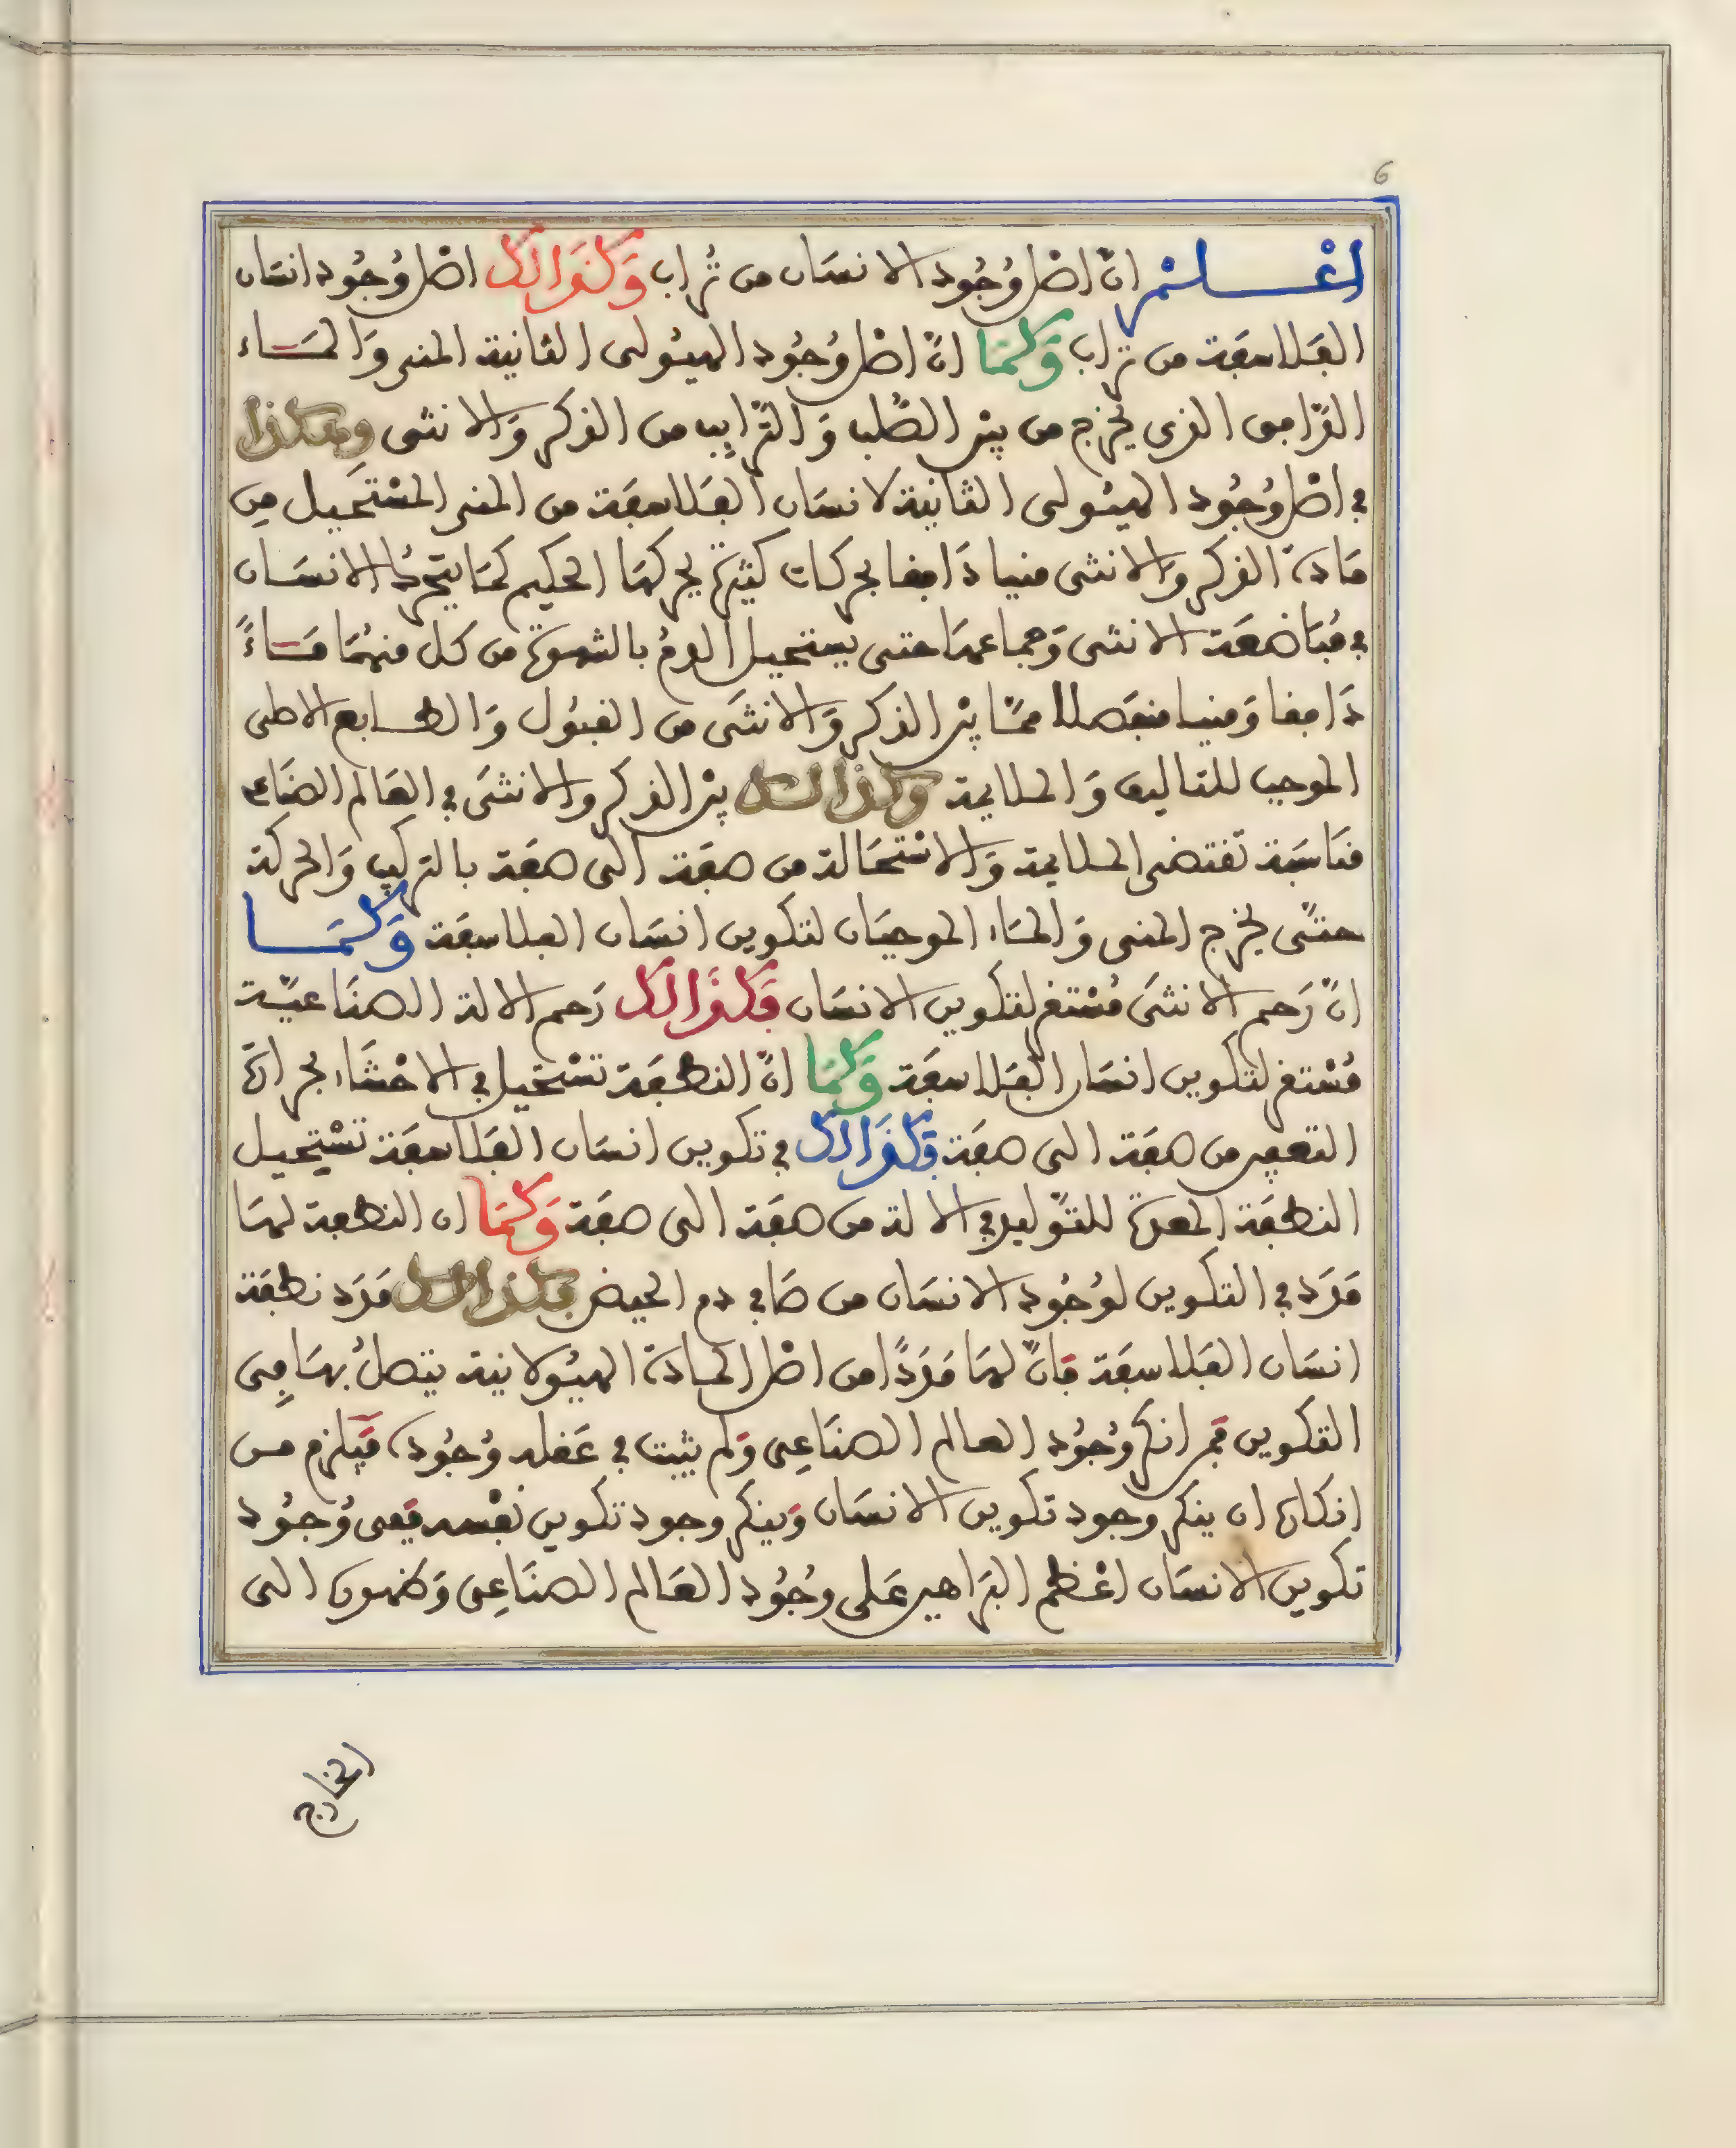 6
اعْلَمْ انّ اصْل وُجُود الانسَان من تُراب وَكذَالك اصْل وُجُود انسَان
الفَلاسفَة من تراب وَكمَا انّ اصْل وُجُود الهيُولى الثانية المنى وَالمَاء
الدّافق الذى يخرج من بيْن الصّلب وَ التّرايب من الذكر وَالانثى وهكذا
في اصْل وُجُود الهيُولى الثانيَة لانسَان الفَلاسفَة من المنى المسْتَحيل مِن
مَادة الذكر وَالانثى منيا دَافقا بحركات كثيرة يحركهَا الحكيم كمَا يتحرّك الانسَان
في مُبَاضعَة الانثى وَجماعهَا حتى يستحيل الدمُ بالشهوة من كل منهُمَا مَاءً
دَافقا وَمنيا منفَصلا ممّا بيْن الذكر وَالانثَى من القبُول وَالطابع الاصلى
الموجب للتاليف وَالملايمة وكذالك بيْن الذكر وَالانثَى في العَالم الصنَاعى
منَاسَبَة تقتضى الملايمة وَالاسْتحَالة من صفَة الى صفَة بالتركيب وَالحركة
حتّى يخرج المنى وَالمَاء الموجبَان لتكوين انسَان الفلاسفَة وَكمَا
انّ رَحم الانثَى مُسْتقر لتكوين الانسَان فَكذَالك رَحم الالة الصنَاعيّة
مُسْتقر لتكوين انسَان الفَلاسفَة وَكمَا انّ النطفَة تسْتحيل في الاحْشَاء بحرارة
التعفين من صفَة الى صفَة فكذَالك في تكوين انسَان الفَلاسفَة تسْتحيل
النطفَة المعدة للتّوليد في الالة من صفَة الى صفَة وَكمَا ان النطفة لهَا
مَدَد في التكوين لوُجُود الانسَان من صَافي دم الحيض فكذالك مَدَد نطفَة
انسَان الفَلاسفَة فَانّ لهَا مَدَدًا من اصْل المادة الهيُولانية يتصلُ بهَا فِى
التكوين فمَن انكر وُجُود العالم الصنَاعِى وَلم يثبت في عَقله وُجُوده فَيلزم من
انكاره ان ينكر وجود تكوين الانسَان وَينكر وجود تكوين نفْسه ففى وُجُود
تكوين الانسَان اعْظم البَراهين عَلى وجُوُد العَالم الصنَاعِى وَظهوره الى
الخارج